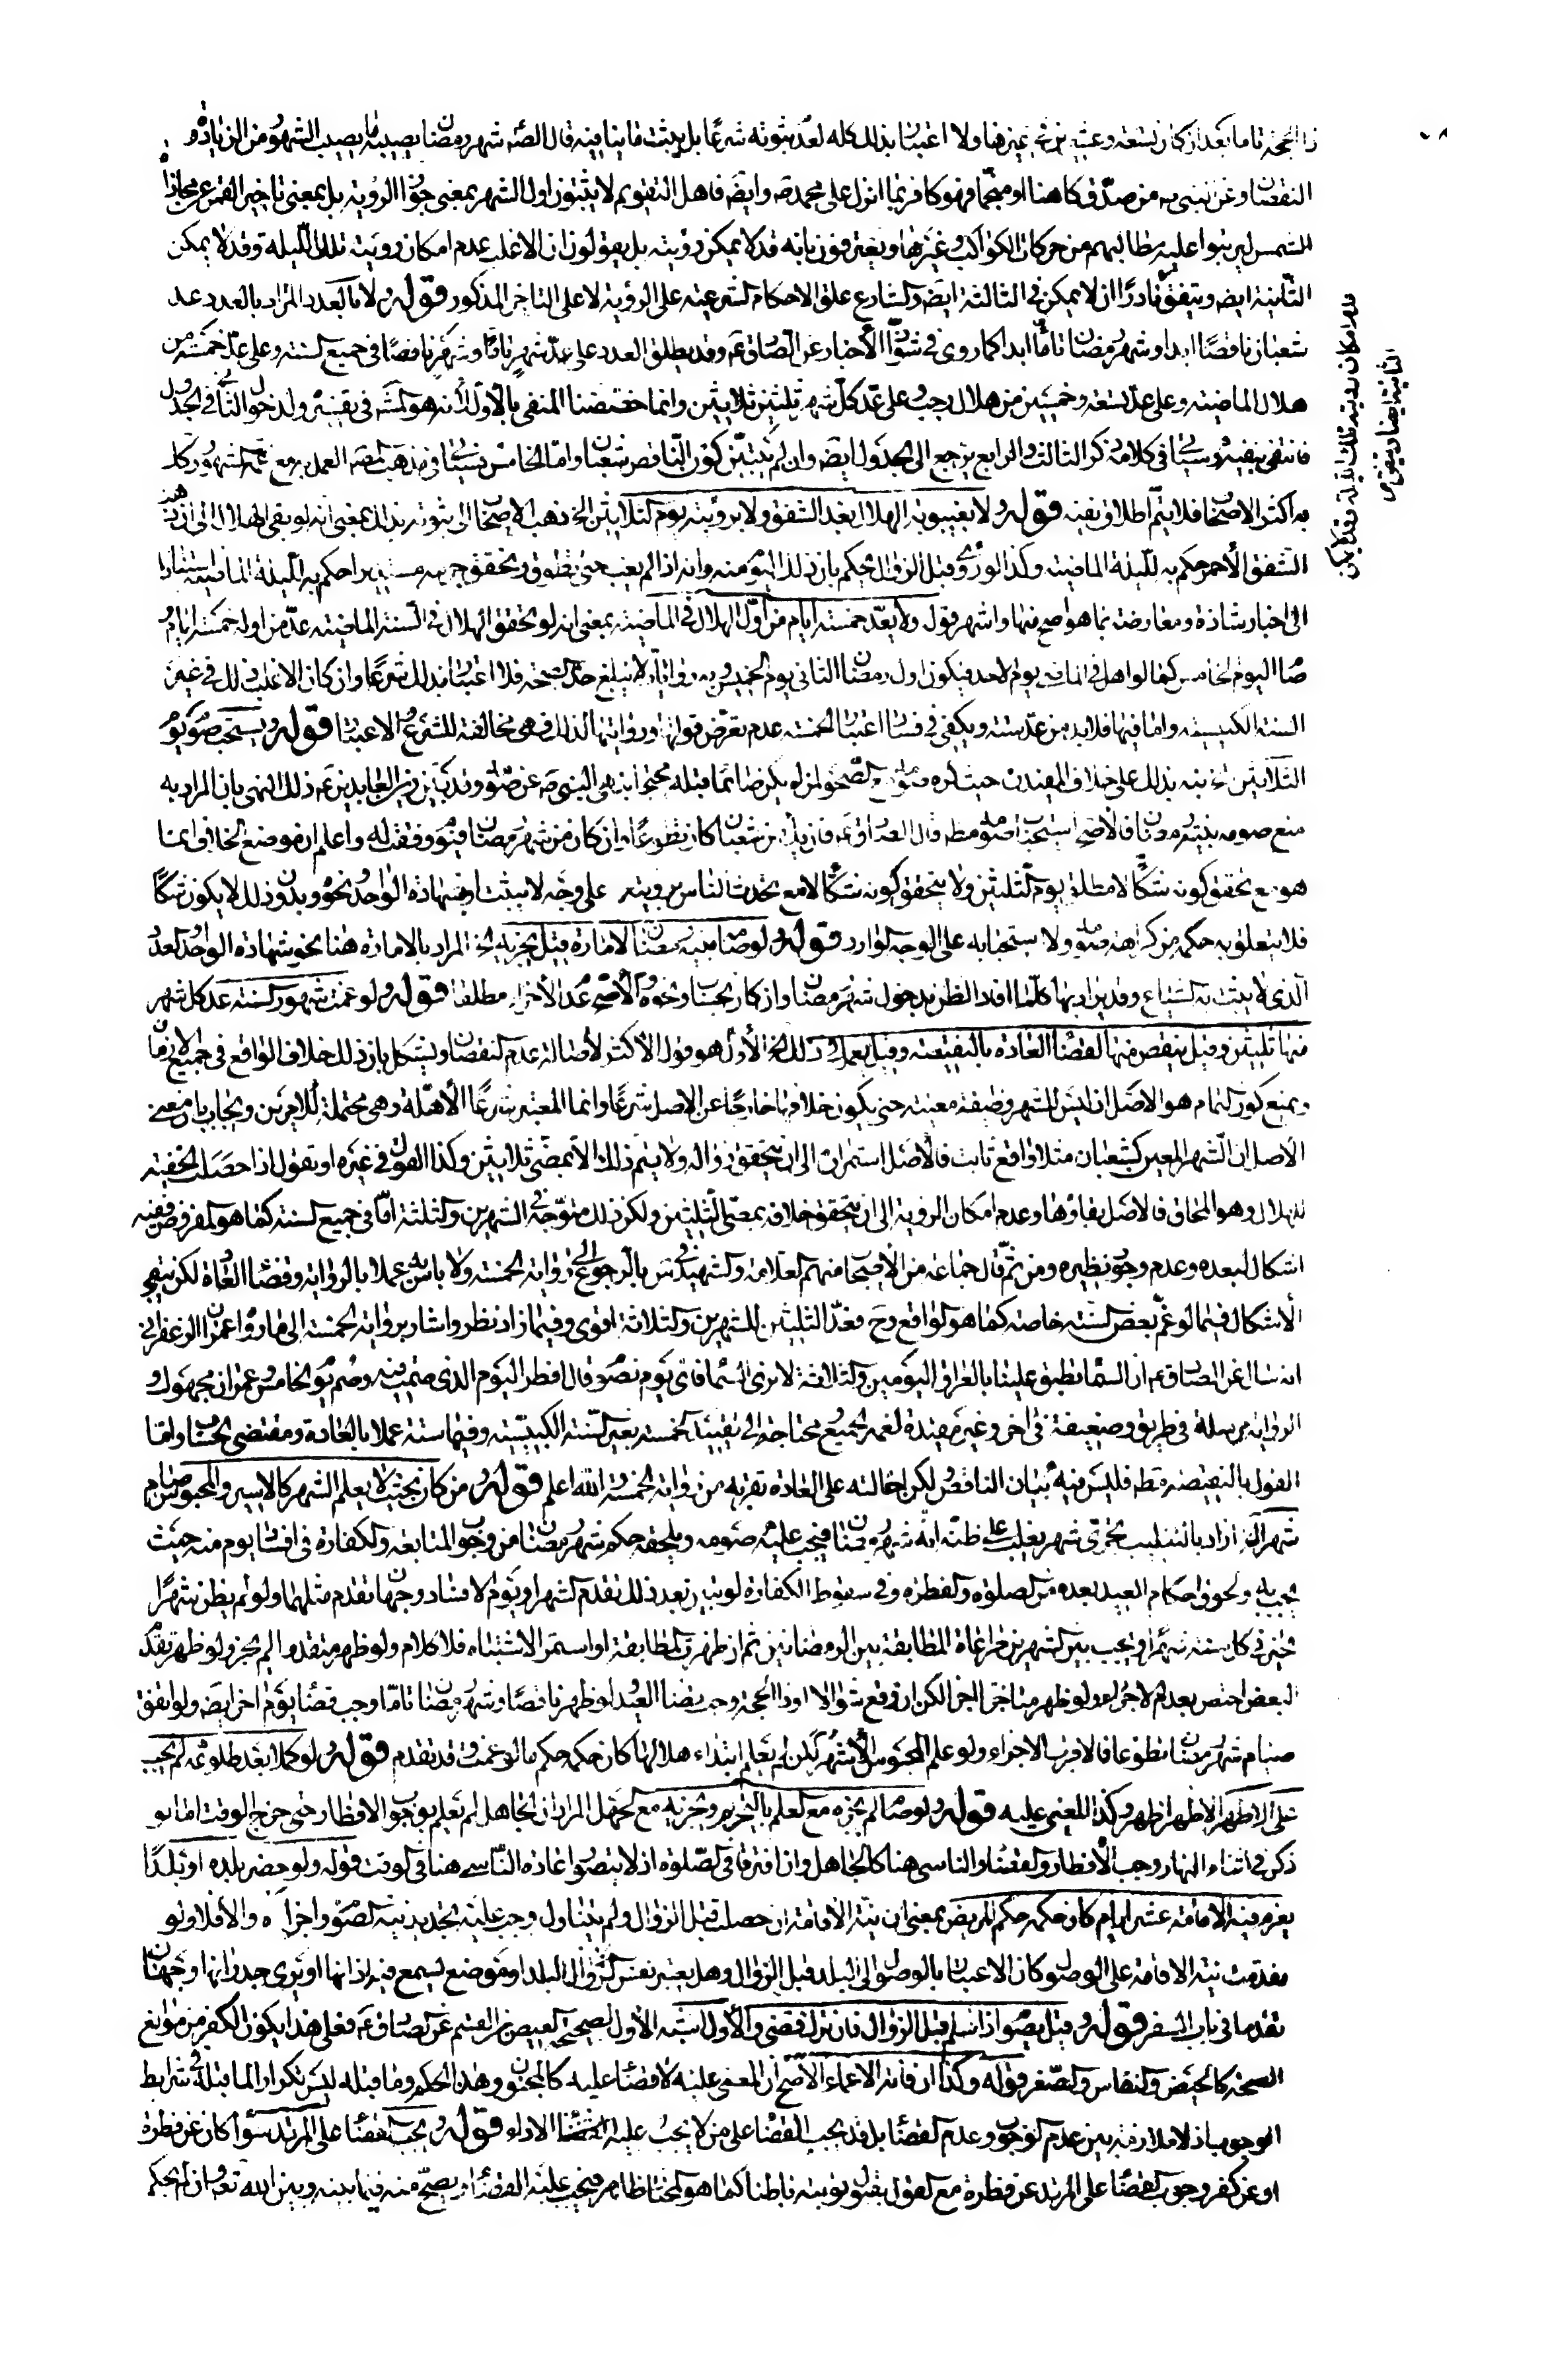 ذا الحجة تاما بعد ان كان تسعة وعشرين في غيرها ولا اعتبار بذلك كله لعدم ثبوته شرعا بل يثبت ما ينافيه قال الصه شهر رمضان يصيبه ما يصيب الشهور من الزيادة و
النقصان وعن النبي ص من صدق كاهنا او منجما فهو كافر بما انزل على محمد ص وايضه فاهل التقويم لا يثبتون اول الشهر بمعنى جواز الروية بل بمعنى تاخر القمر عن محاذاة
الشمس ليرتبوا عليه مطالبهم من حركات الكواكب وغيرها ويعترفون بانه قد لا يمكن رؤيته بل يقولون ان الاغلب عدم امكان رويته تلك الليلة وقد لا يمكن
الثانية ايضه ويتفق نادرا ان لا يمكن في الثالثة ايضه والشارع علق الاحكام الشرعية على الرؤية لا على التاخر المذكور قوله ولا بالعدد المراد بالعدد عد
شعبان ناقصا ابدا وشهر رمضان تاما ابدا كما روى في شواذ الأخبار عن الصادق ع وقد يطلق العدد على عد شهر تاما وشهر ناقصا في جميع السنة وعلى عد خمسة من
هلال الماضية وعلى عد تسعة وخمسين من هلال رجب وعلى عد كل شهر ثلثين ثلاثين وانما خصصنا المنفى بالأول لأنه هو المشه في تفسيره ولدخول الثاني في الجدول
فانتفى بنفيه وسيأتي في كلامه ذكر الثالث والرابع يرجع الى الجدول ايضه وان لم يتبين كون الناقص شعبان واما الخامس فسيأتي مذهب المصه العمل به مع غمة الشهور كلها
به اكثر الاصحاب فلا يتم اطلاق نفيه قوله ولا بغيبوبة الهلال بعد الشفق ولا برؤيته يوم الثلاثين الخ ذهب بعض الاصحاب الى ثبوته بذلك بمعنى انه لو بقى الهلال الى ان ذهب
الشفق الأحمر حكم به لليلة الماضية وكذا لو رئى قبل الزوال حكم بان ذلك اليوم منه وانه اذا لم يغب حتى تطوق وتحقق جرمه مستديرا حكم به لليلة الماضية استنادا
الى اخبار شاذة ومعارضة بما هو اصح منها واشهر قوله ولا بعد خمسة ايام من اول الهلال في الماضية بمعنى انه لو تحقق الهلال في السنة الماضية عد من اوله خمسة ايام و
صام اليوم الخامس كما لو اهل في الماضي يوم الاحد فيكون اول رمضان الثاني يوم الخميس وبه روايات لا تبلغ حد الصحة فلا اعتبار بذلك شرعا وان كان الاغلب ذلك في غير
السنة الكبيسية واما فيها فلا بد من عد ستة ويكفي في فساد اعتبار الخمسة عدم تعرض قولها ورواتها لذلك فهي مخالفة للشرع والاعتبار قوله ويستحب صوم يوم
الثلاثين الخ نبه بذلك على خلاف المفيد ره حيث كره صومه مع الصحو لمن لم يكن صائما قبله محتجا بنهي النبي ص عن صومه وقد بين زين العابدين ع ذلك النهي بان المراد به
منع صومه بنية رمضان فالأصح استحباب صومه مطه قال الصادق ع فان يك من شعبان كان تطوعا وان كان من شهر رمضان فيوم وفقت له واعلم ان موضع الخلاف انما
هو مع تحقق كونه شكا لا مطلق يوم الثلثين ولا يتحقق كونه شكا الا مع تحدث الناس برويته على وجه لا يثبت او بشهادة الواحد ونحوه وبدون ذلك لا يكون شكا
فلا يتعلق به حكمه من كراهة صومه ولا استحبابه على الوجه الوارد قوله ولو صامه بنية رمضان لامارة قيل يجزيه الخ المراد بالامارة هنا نحو شهادة الواحد العدل
الذي لا يثبت به الشياع وقد يراد بها كلما افاد الظن بدخول شهر رمضان وان كان بحساب ونحوه والأصح عدم الأجزاء مطلقا قوله ولو غمت شهور السنة عد كل شهر
منها ثلثين وقيل ينقص منها لقضاء العادة بالنقيصة وقيل يعمل في ذلك الخ الأول هو قول الاكثر لأصالة عدم النقصان ويشكل بان ذلك خلاف الواقع في جميع الازمان
ويمنع كون التمام هو الاصل اذ ليس للشهر وظيفة معينة حتى يكون خلافها خارجا عن الاصل شرعا وانما المعتبر شرعا الأهلة وهي محتملة للامرين ويجاب بان معنى
الاصل ان الشهر المعين كشعبان مثلا واقع ثابت فالأصل استمراره الى ان يتحقق زواله ولا يتم ذلك الا بمضي ثلاثين وكذا القول في غيره او نقول اذا حصلت الخفية
للهلال وهو المحاق فالاصل بقاؤها وعدم امكان الروية الى ان يتحقق خلافه بمضي الثلثين ولكن ذلك متوجه في الشهرين والثلثة اما في جميع السنة كما هو المفروض ففيه
اشكال لبعده وعدم وجود نظيره ومن ثم قال جماعة من الأصحاب منهم العلامة والشهيد في س بالرجوع الى رواية الخمسة ولا باس به عملا بالرواية وقضاء العادة لكن يبقى
الأشكال فيما لو غم بعض السنة خاصة كما هو الواقع وح فعد الثلثين للشهرين والثلاثة اقوى وفيما زاد نظر واشار برواية الخمسة الى ما رواه عمران الزعفراني
انه سال عن الصادق ع ان السماء تطبق علينا بالعراق اليومين والثلاثة لا نرى السماء فاي يوم نصوم قال افطر اليوم الذي صمت فيه وصم يوم الخامس وعمران مجهول و
الرواية مرسلة في طريق وضعيفة في اخر وغير مقيدة لغمة الجميع محتاجة الى تقييد الخمسة بغير السنة الكبيسية وفيها ستة عملا بالعادة ومقتضى الحساب واما
القول بالنقيصة فقط فليس فيه بيان الناقص لكن احالته على العادة تقربه من رواية الخمسة والله اعلم قوله ومن كان بحيث لا يعلم الشهر كالاسير والمحبوس صام
شهرا الخ اراد بالتغليب تحري شهر يغلب على ظنه انه شهر رمضان فيجب عليه صومه ويلحقه حكم شهر رمضان من وجوب المتابعة والكفارة في افساد يوم منه حيث
تجب به ولحوق احكام العيد بعده من الصلوة والفطرة وفي سقوط الكفارة لو تبين بعد ذلك تقدم الشهر او يوم الافساد وجهان تقدم مثلهما ولو لم يظن شهرا
تخير في كل سنة شهرا ويجب بين الشهرين مراعاة المطابقة بين الرمضانين ثم ان ظهرت المطابقة او استمر الاشتباه فلا كلام ولو ظهر متقدما لم يجز ولو ظهر تقدم
البعض اختص بعدم الاجزاء ولو ظهر متاخرا اجزا لكن ان وقع شوالا او ذا الحجة وجب قضاء العيد ولو ظهر ناقصا وشهر رمضان تاما وجب قضاء يوم اخر ايضه ولو اتفق
صيام شهر رمضان تطوعا فالاقرب الاجزاء ولو علم المحبوس الأشهر لكن لم يعلم ابتداء هلالها كان حكمه حكم ما لو غمت وقد تقدم قوله ولو كمل بعد طلوعه لم يجب
على الاظهر الاظهر اظهر وكذا المغمى عليه قوله ولو صام لم يجزه مع العلم بالتحريم ويجزيه مع الجهل المراد ان الجاهل لم يعلم بوجوب الافطار حتى خرج الوقت اما لو
ذكر في اثناء النهار وجب الأفطار والقضاء والناسي هنا كالجاهل وان افترقا في الصلوة اذ لا يتصور اعادة الناسي هنا في الوقت قوله ولو حضر بلده او بلدا
يعزم فيه الاقامة عشرة ايام كان حكمه حكم المريض بمعنى ان نية الأقامة ان حصلت قبل الزوال ولم يتناول وجب عليه تجديد نية الصوم واجزأه والأفلا ولو
تقدمت نية الاقامة على الوصول كان الاعتبار بالوصول الى البلد قبل الزوال وهل يعتبر نفس البلد او موضع يسمع فيه اذانها او يرى جدرانها وجهان
تقدما في باب السفر قوله وقيل يصوم اذا اسلم قبل الزوال فان ترك قضى والأول اشبه الأول لصحيحة العيص بن القسم عن الصادق ع فعلى هذا يكون الكفر من موانع
الصحة كالحيض والنفاس والصغر قوله وكذا ان فاته الاغماء الأصح ان المغمى عليه لا قضاء عليه كالمجنون وهذا الحكم وما قبله ليس تكرارا لما قبله في شرايط
الوجوب اذ لا ملازمة بين عدم الوجوب وعدم القضاء بل قد يجب القضاء على من لا يجب عليه الاداء قوله يجب القضاء على المرتد سواء كان عن فطرة
او عن كفر وجوب القضاء على المرتد عن فطرة مع القول بقبول توبته باطنا كما هو المختار ظاهر فيجب عليه القضاء ويصح منه فيما بينه وبين الله تعه وان لم يحكم